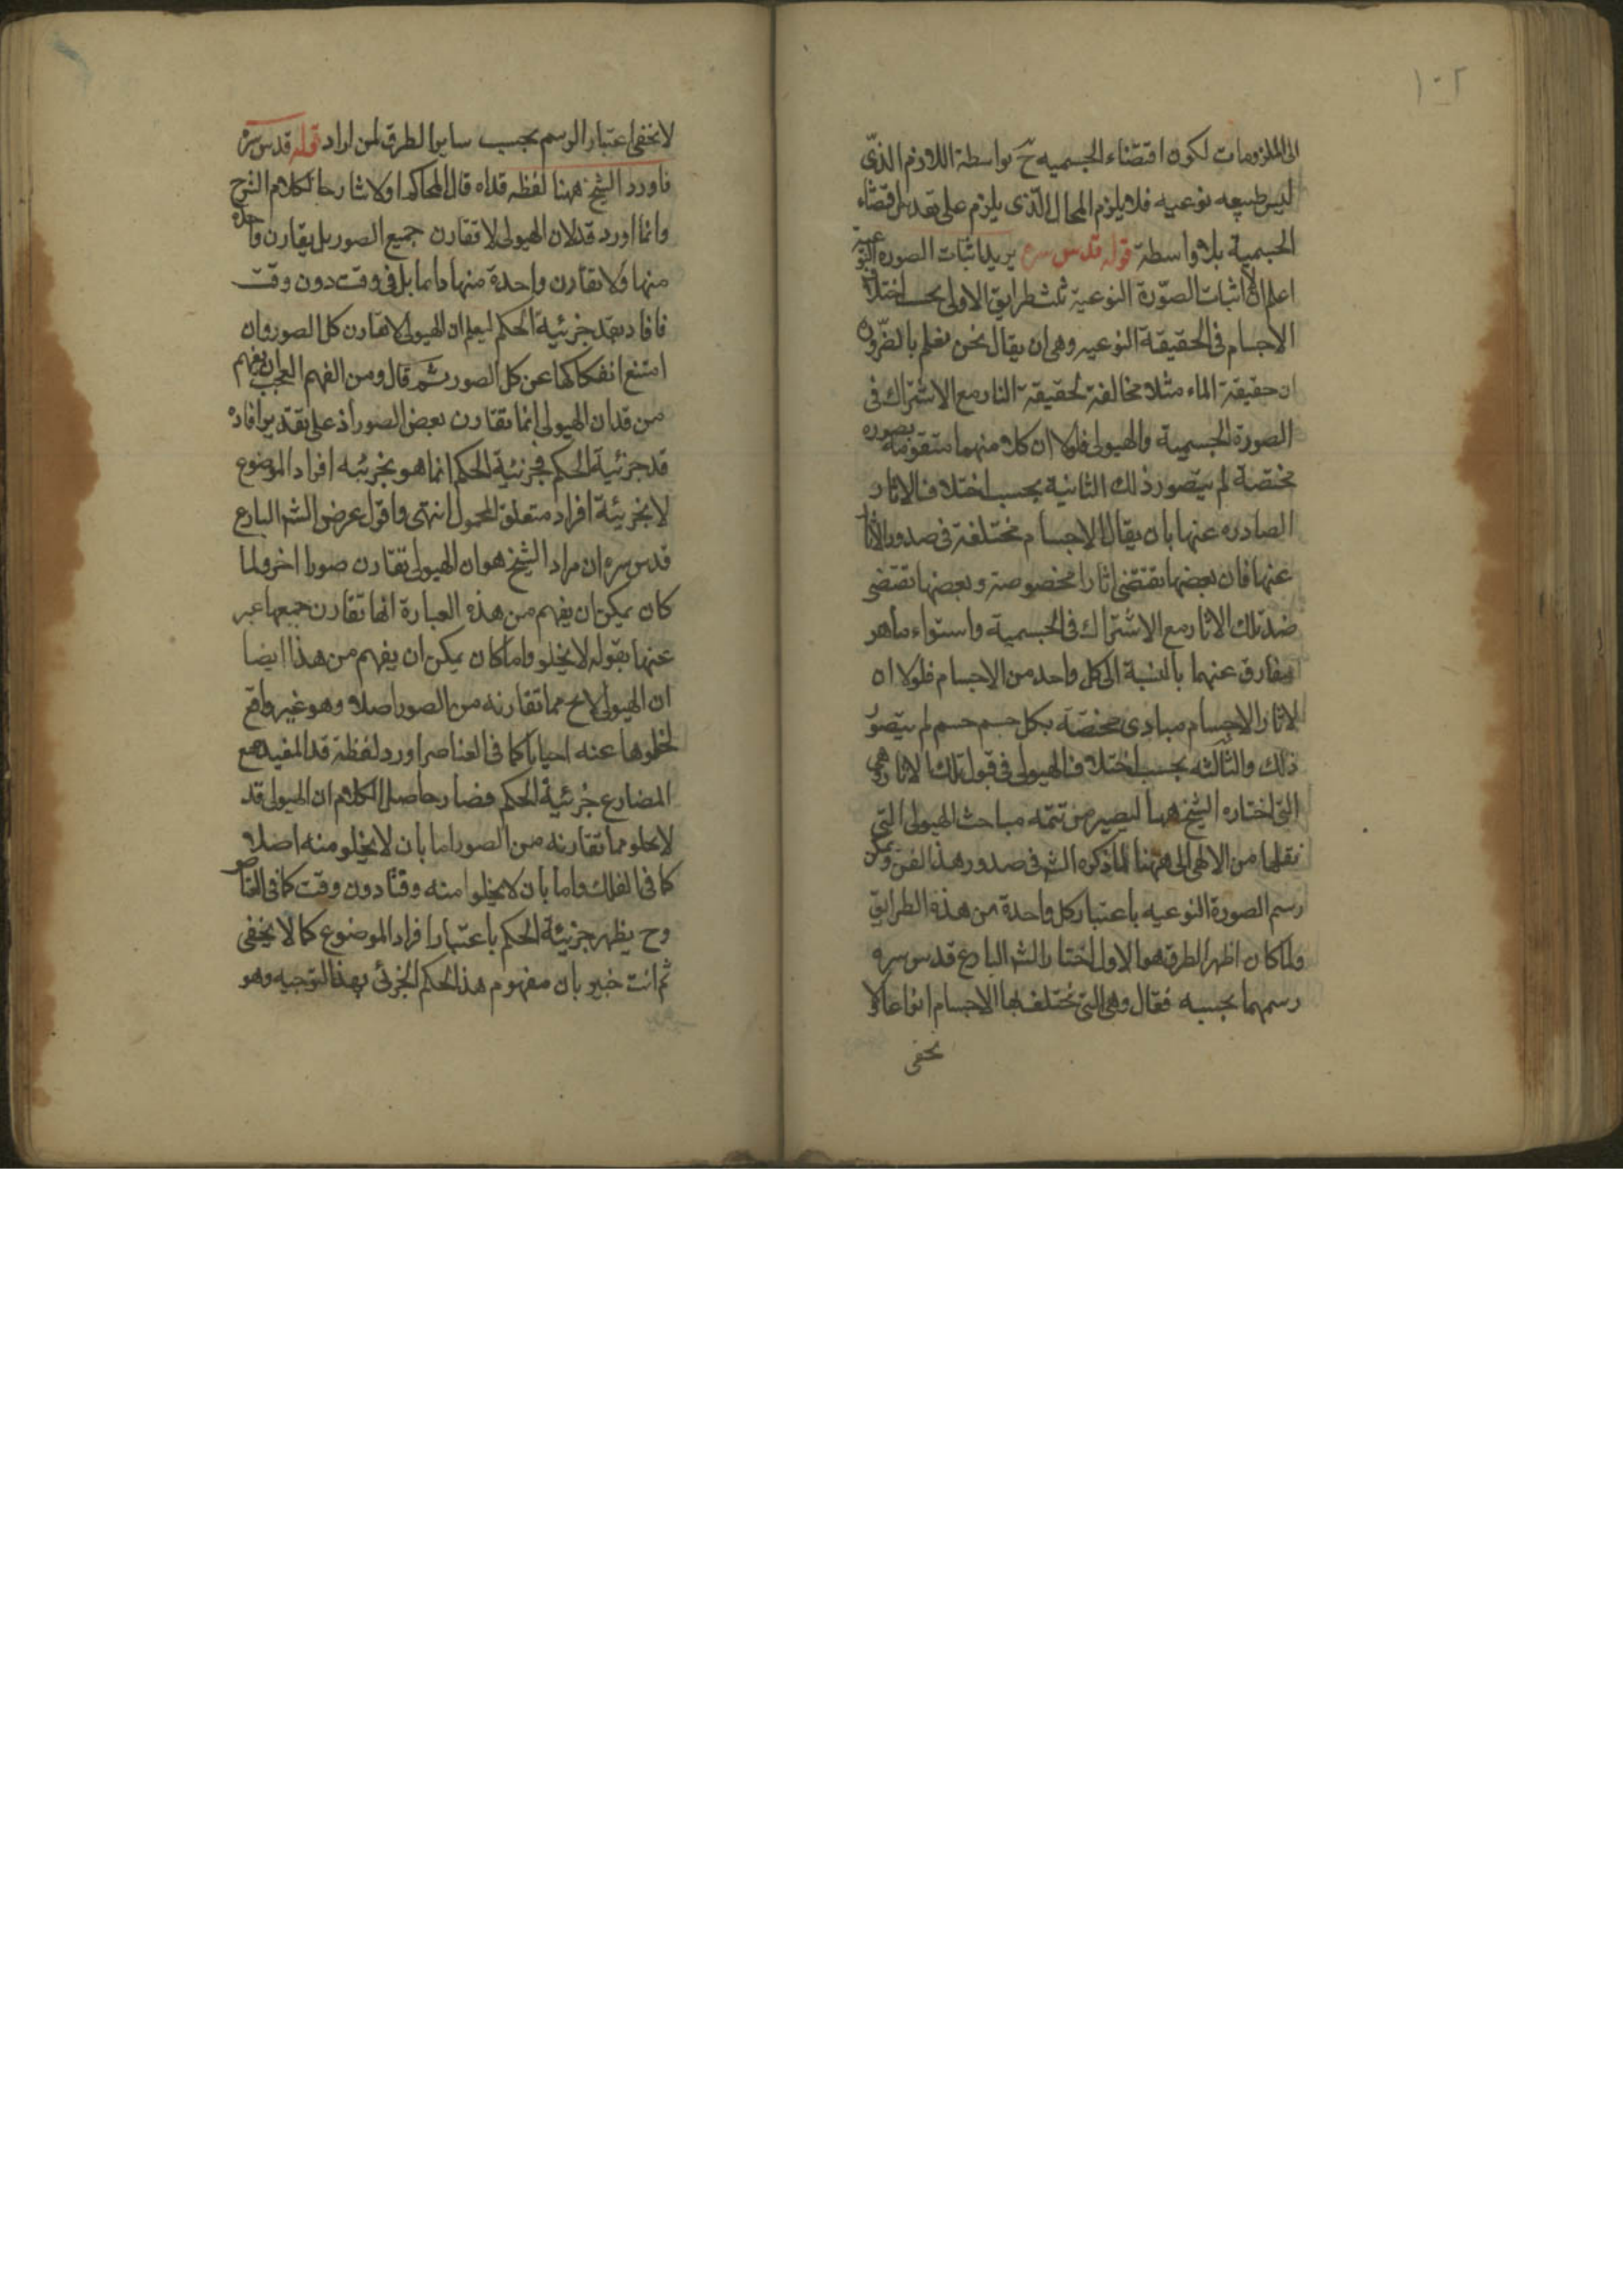 ١٠٢
الى الملزومات لكون اقتضاء الجسميه ح بواسطة اللازم الذى
ليس طبيعه نوعيه فلا يلزم المحال الذى يلزم على تقدير اقتضاء
الجسمية بلا واسطة قوله قدس سره يريد اثبات الصورة النوعية
اعلم ان لاثبات الصورة النوعية ثلث طرايق الاولى بحسب اختلاف
الاجسام فى الحقيقة النوعيه وهى ان يقال نحن نعلم بالضرورة
ان حقيقة الماء مثلا مخالفة لحقيقة النار مع الاشتراك فى
الصورة الجسمية والهيولى فلولا ان كلا منهما متقومة بصوره
مختصة لم يتصور ذلك الثانية بحسب اختلاف الاثار
الصادره عنها بان يقال الاجسام مختلفة فى صدور الاثار
عنها فان بعضها تقتضى اثارا مخصوصة وبعضها تقتضى
ضد تلك الاثار مع الاشتراك فى الجسمية واستواء ماهر
مفارق عنهما بالنسبة الى كل واحد من الاجسام فلولا ان
لاثار الاجسام مبادى مختصة بكل جسم جسم لم يتصور
ذلك والثالثه بحسب اختلاف الهيولى فى قبول تلك الاثار وهى
التى اختاره الشيخ ههنا ليصير من تتمه مباحث الهيولى التى
نقلها من الالهى الى ههنا لما ذكره الش فى صدور هذا الفن ويمكن
رسم الصورة النوعيه باعتبار كل واحدة من هذه الطرايق
ولما كان اظهر الطرق هو الاول اختار الش البارع قدس سره
رسمهما بحسبه فقال وهى التى تختلف بها الاجسام انواعا ولا
يخفى
لا يخفى اعتبار الرسم بحسب ساير الطرق لمن اراد قوله قدس سره
فاورد الشيخ ههنا لفظه قد اه قال المحاكم اولا شارحا لكلام الشرح
وانما اورد قد لان الهيولى لا تقارن جميع الصور بل يقارن واحدة
منها ولا تقارن واحدة منها دايما بل فى وقت دون وقت
فافاد بقد جزئية الحكم ليعلم ان الهيولى لا تقارن كل الصور وان
امتنع انفكاكها عن كل الصور ثم قال ومن الفهم العجب ان يفهم
من قد ان الهيولى انما تقارن بعض الصور اذ على تقدير افاده
قد جزئية الحكم فجزئية الحكم انما هو بجزئيه افراد الموضوع
لا بجزئية افراد متعلق المحمول انتهى واقول عرض الش البارع
قدس سره ان مراد الشيخ هو ان الهيولى تقارن صورا اخر ولما
كان يمكن ان يفهم من هذه العبارة انها تقارن جميعها عبر
عنها بقوله لا يخلو واما كان يمكن ان يفهم من هذا ايضا
ان الهيولى لا يخ مما تقارنه من الصور اصلا وهو غير واقع
لخلوها عنه احيانا كما فى العناصر اورد لفظة قد المفيد مع
المضارع جزئية الحكم فصار حاصل الكلام ان الهيولى قد
لا يخلو مما تقارنه من الصور اما بان لا يخلو منه اصلا
كما فى الفلك واما بان لا يخلو منه وقتا دون وقت كما فى العناصر
وح يظهر جزئية الحكم باعتبار افراد الموضوع كما لا يخفى
ثم انت خبير بان مفهوم هذا الحكم الجزئى بهذا التوجيه وهو